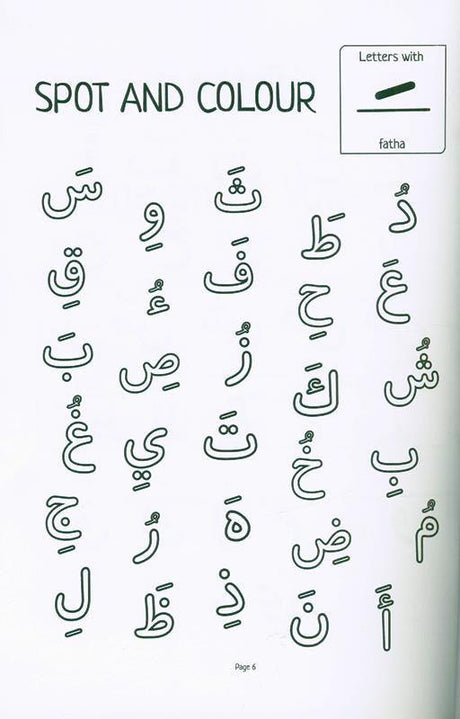 SPOT AND COLOUR
Letters with
fatha
دُ طَ ثَ وِ سَ
عَ حِ فَ ءُ قِ
شُ كَ زُ صِ بَ
بِ خُ تَ يِ غُ
مُ ضِ هَ رُ جِ
أَ نَ ذِ ظَ لِ
Page 6